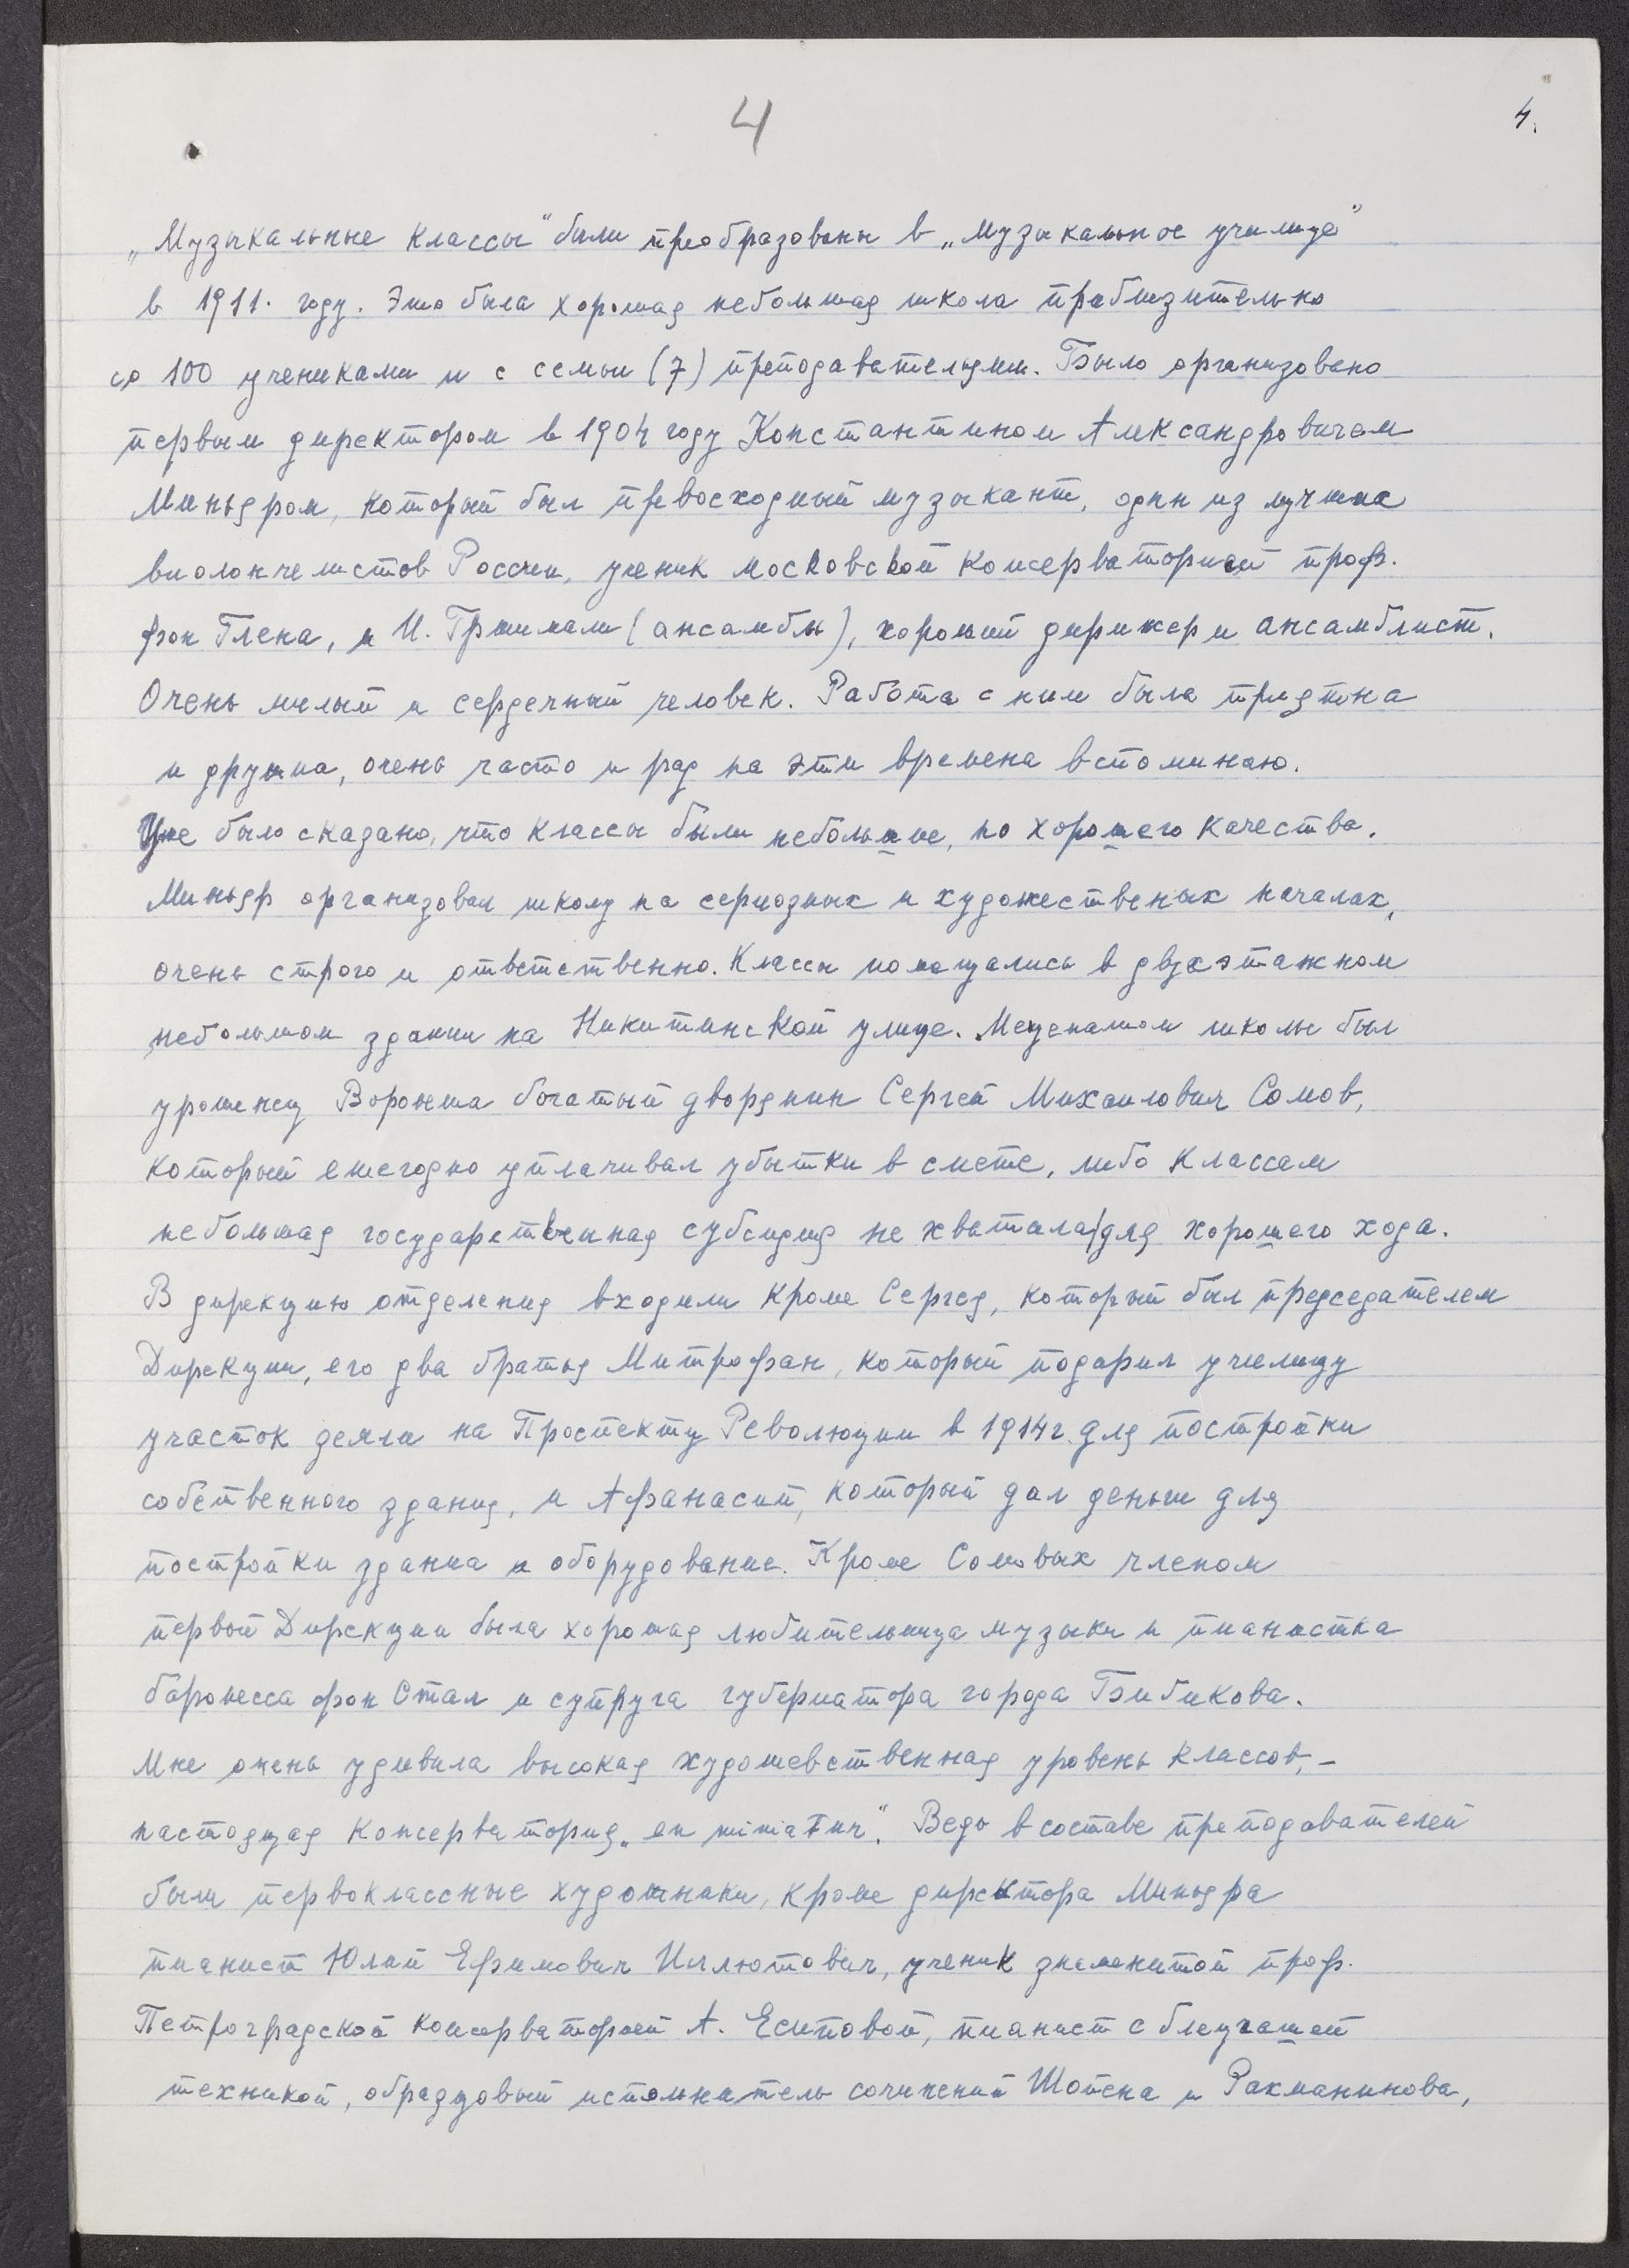 4
4.
„Музыкальные классы" были преобразованы в „музыкальное училище"
в 1911. году. Это была хорошая небольшая школа приблизительно
со 100 учениками и с семьи (7) преподавателями. Было организовано
первым директором в 1904 году Константином Александровичем
Миньяром, который был превосходный музыкант, один из лучших
виолончелистов России, ученик московской консерваторией проф.
фон Глена, и И. Гржимали (ансамбль), хороший дирижер и ансамблист.
Очень милый и сердечный человек. Работа с ним была приятна
и дружна, очень часто и рад на эти времена вспоминаю.
Уже было сказано, что классы были небольшие, но хорошего качества.
Миньяр организовал школу на сериозных и художественых началах,
очень строго и ответственно. Классы помещались в двухэтажном
небольшом здании на Никитинской улице. Меценатом школы был
уроженец Воронежа богатый дворянин Сергей Михаилович Сомов,
который ежегодно уплачивал убытки в смете, либо классам
небольшая государственная субсидия не хватала/для хорошего хода.
В дирекцию отделения входили кроме Сергея, который был председателем
Дирекции, его два братья Митрофан, который подарил училищу
участок земли на Проспекту Революции в 1914 г. для постройки
собственного здания, и Афанасий, который дал деньги для
постройки здания и оборудование. Кроме Сомовых членом
первой Дирекции была хорошая любительница музыки и пианистка
баронесса фон Стал и супруга губернатора города Бибикова.
Мне очень удивила высокая художевственная уровень классов, –
настоящая консерватория „en miniatur". Ведь в составе преподавателей
были первоклассные художники, кроме директора Миньяра
пианист Юлий Ефимович Иллютович, ученик знаменитой проф.
Петроградской консерваторией А. Есиповой, пианист с блещащей
техникой, образцовый исполнитель сочинений Шопена и Рахманинова,